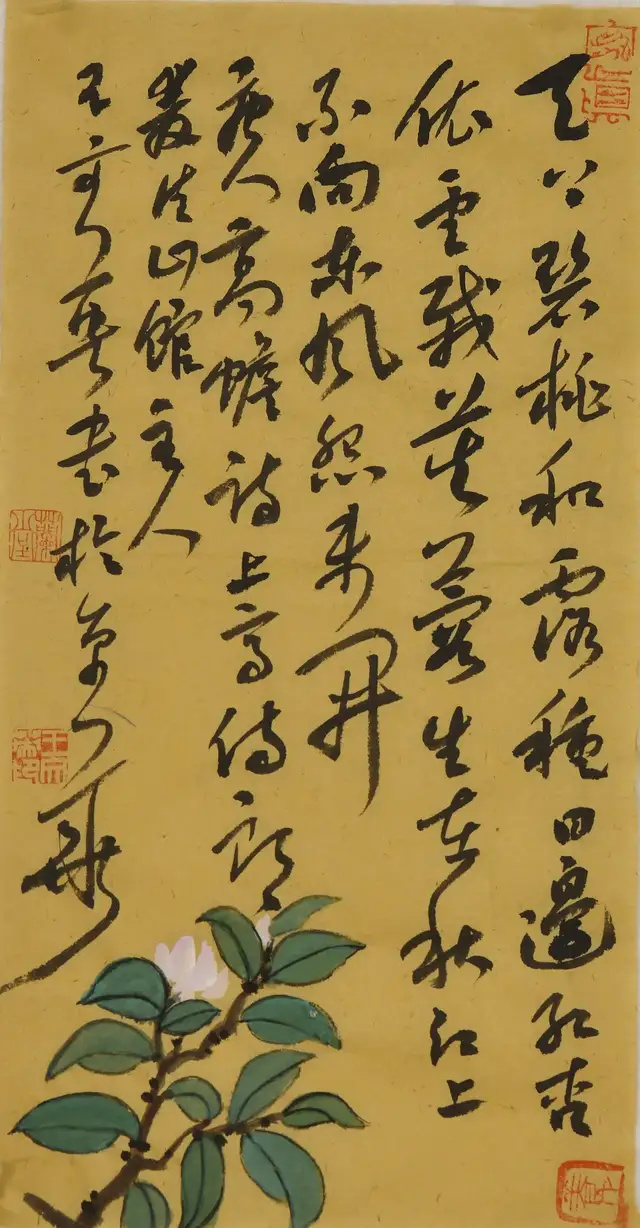 天上碧桃和露種日邊紅杏
依雲栽芙蓉生在秋江上
不向東風怨未開
唐人高蟾詩上高侍郎
山館主人
書於京華